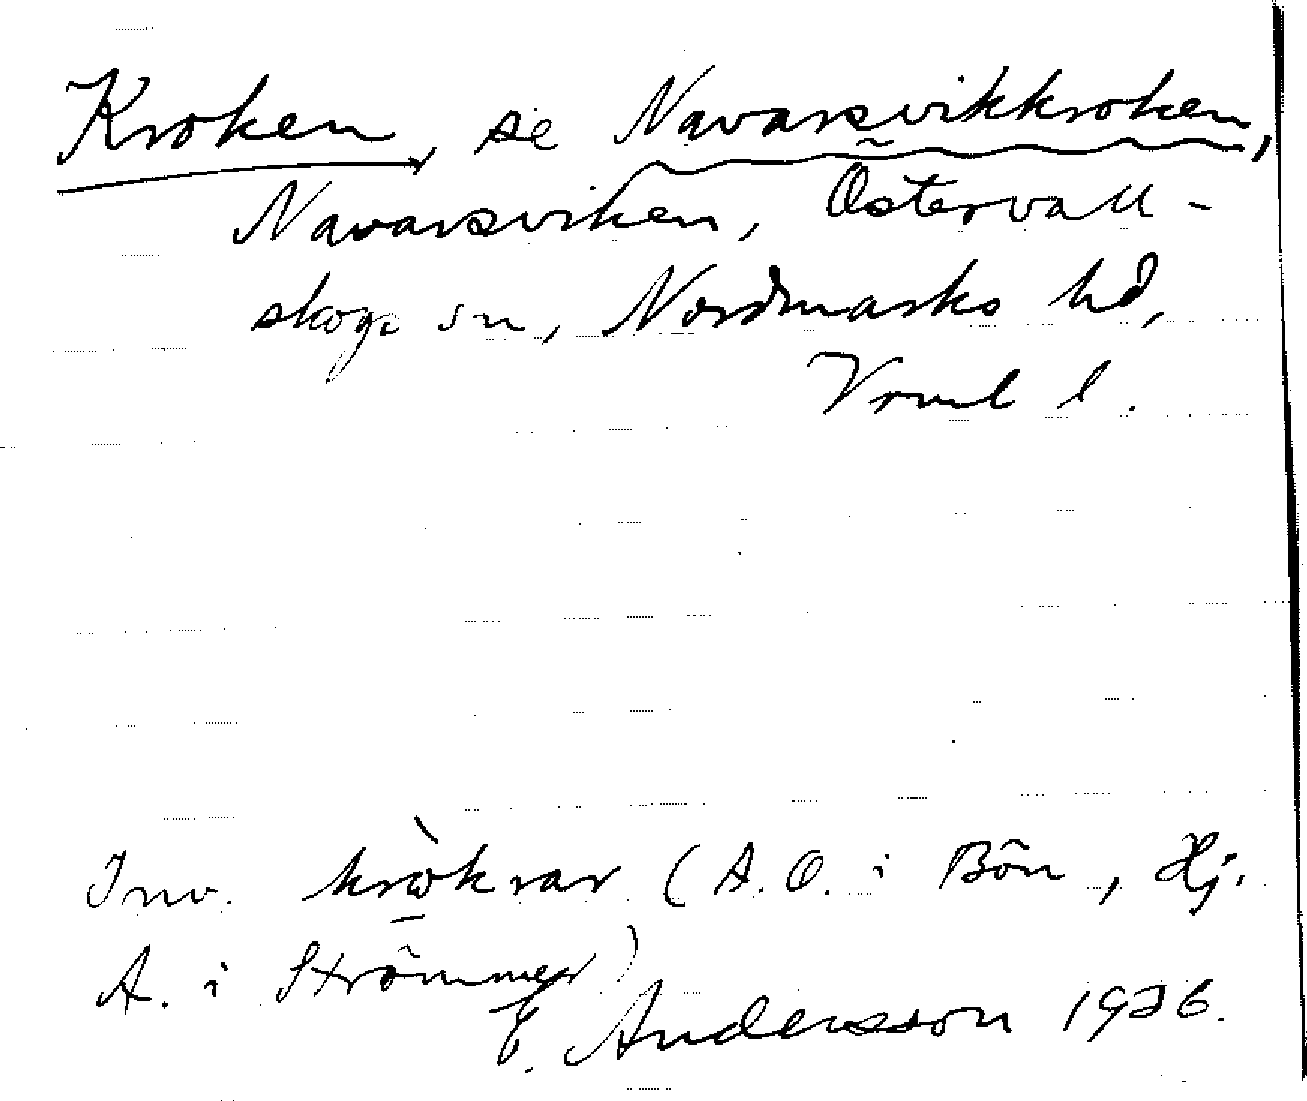 Kroken, se Navarsvikkroken,
Navarsviken, Östervall-
skogs sn, Nordmarks hd,
Vrml l.
Inv. krωkrar (A. O. i Bön, Hj.
A. i Strömmer)
E. Andersson 1936.